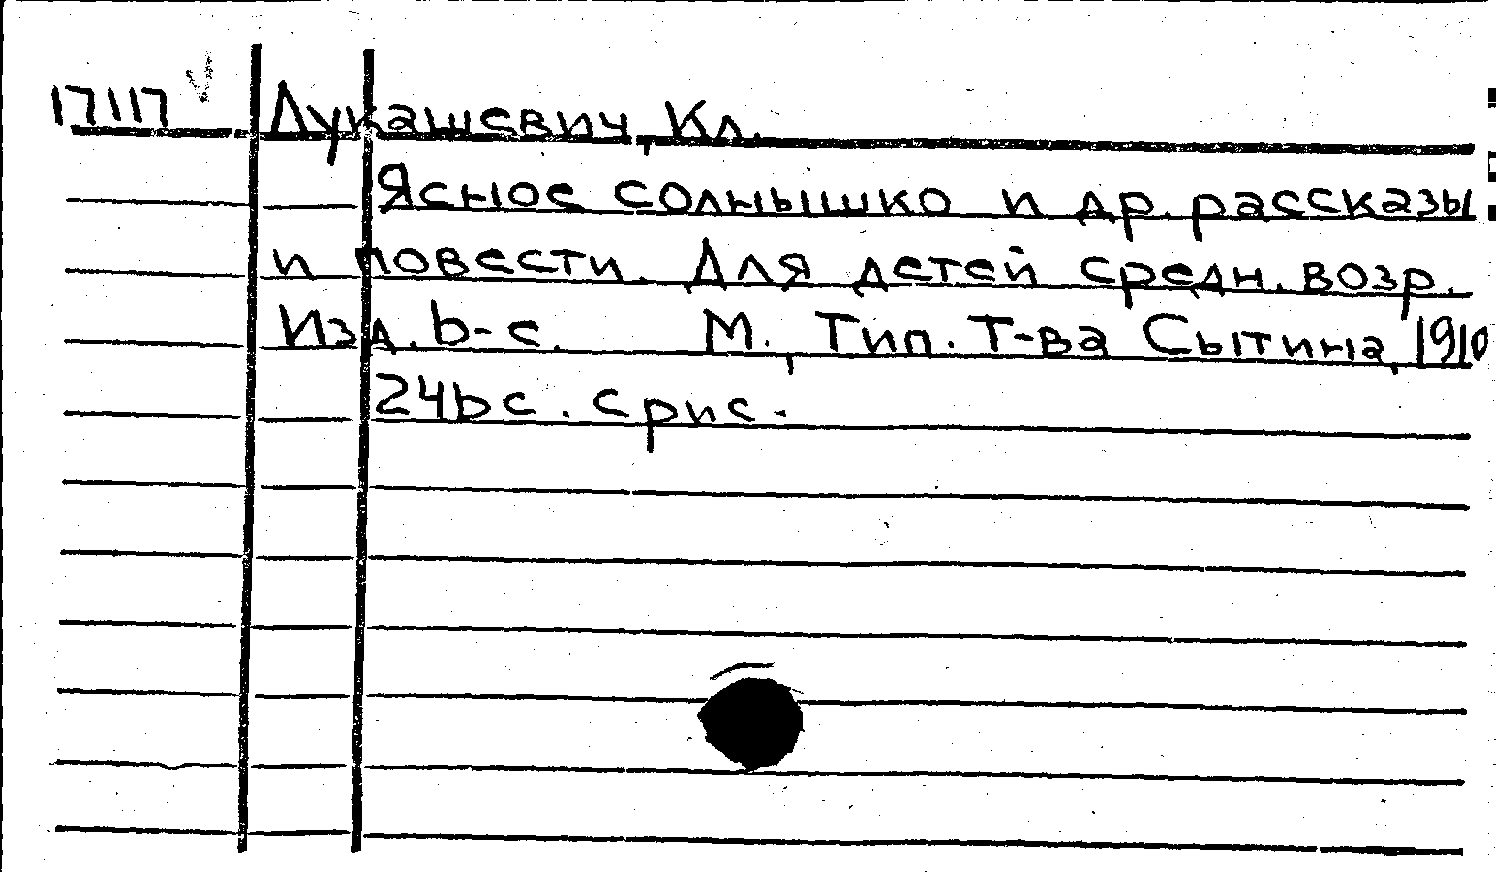 17117 Лукашевич, Кл.
Ясное солнышко и др. рассказы
и повести. Для детей средн. возр.
Изд. 6-е. М., Тип. Т-ва Сытина, 1910
246 с. с рис.